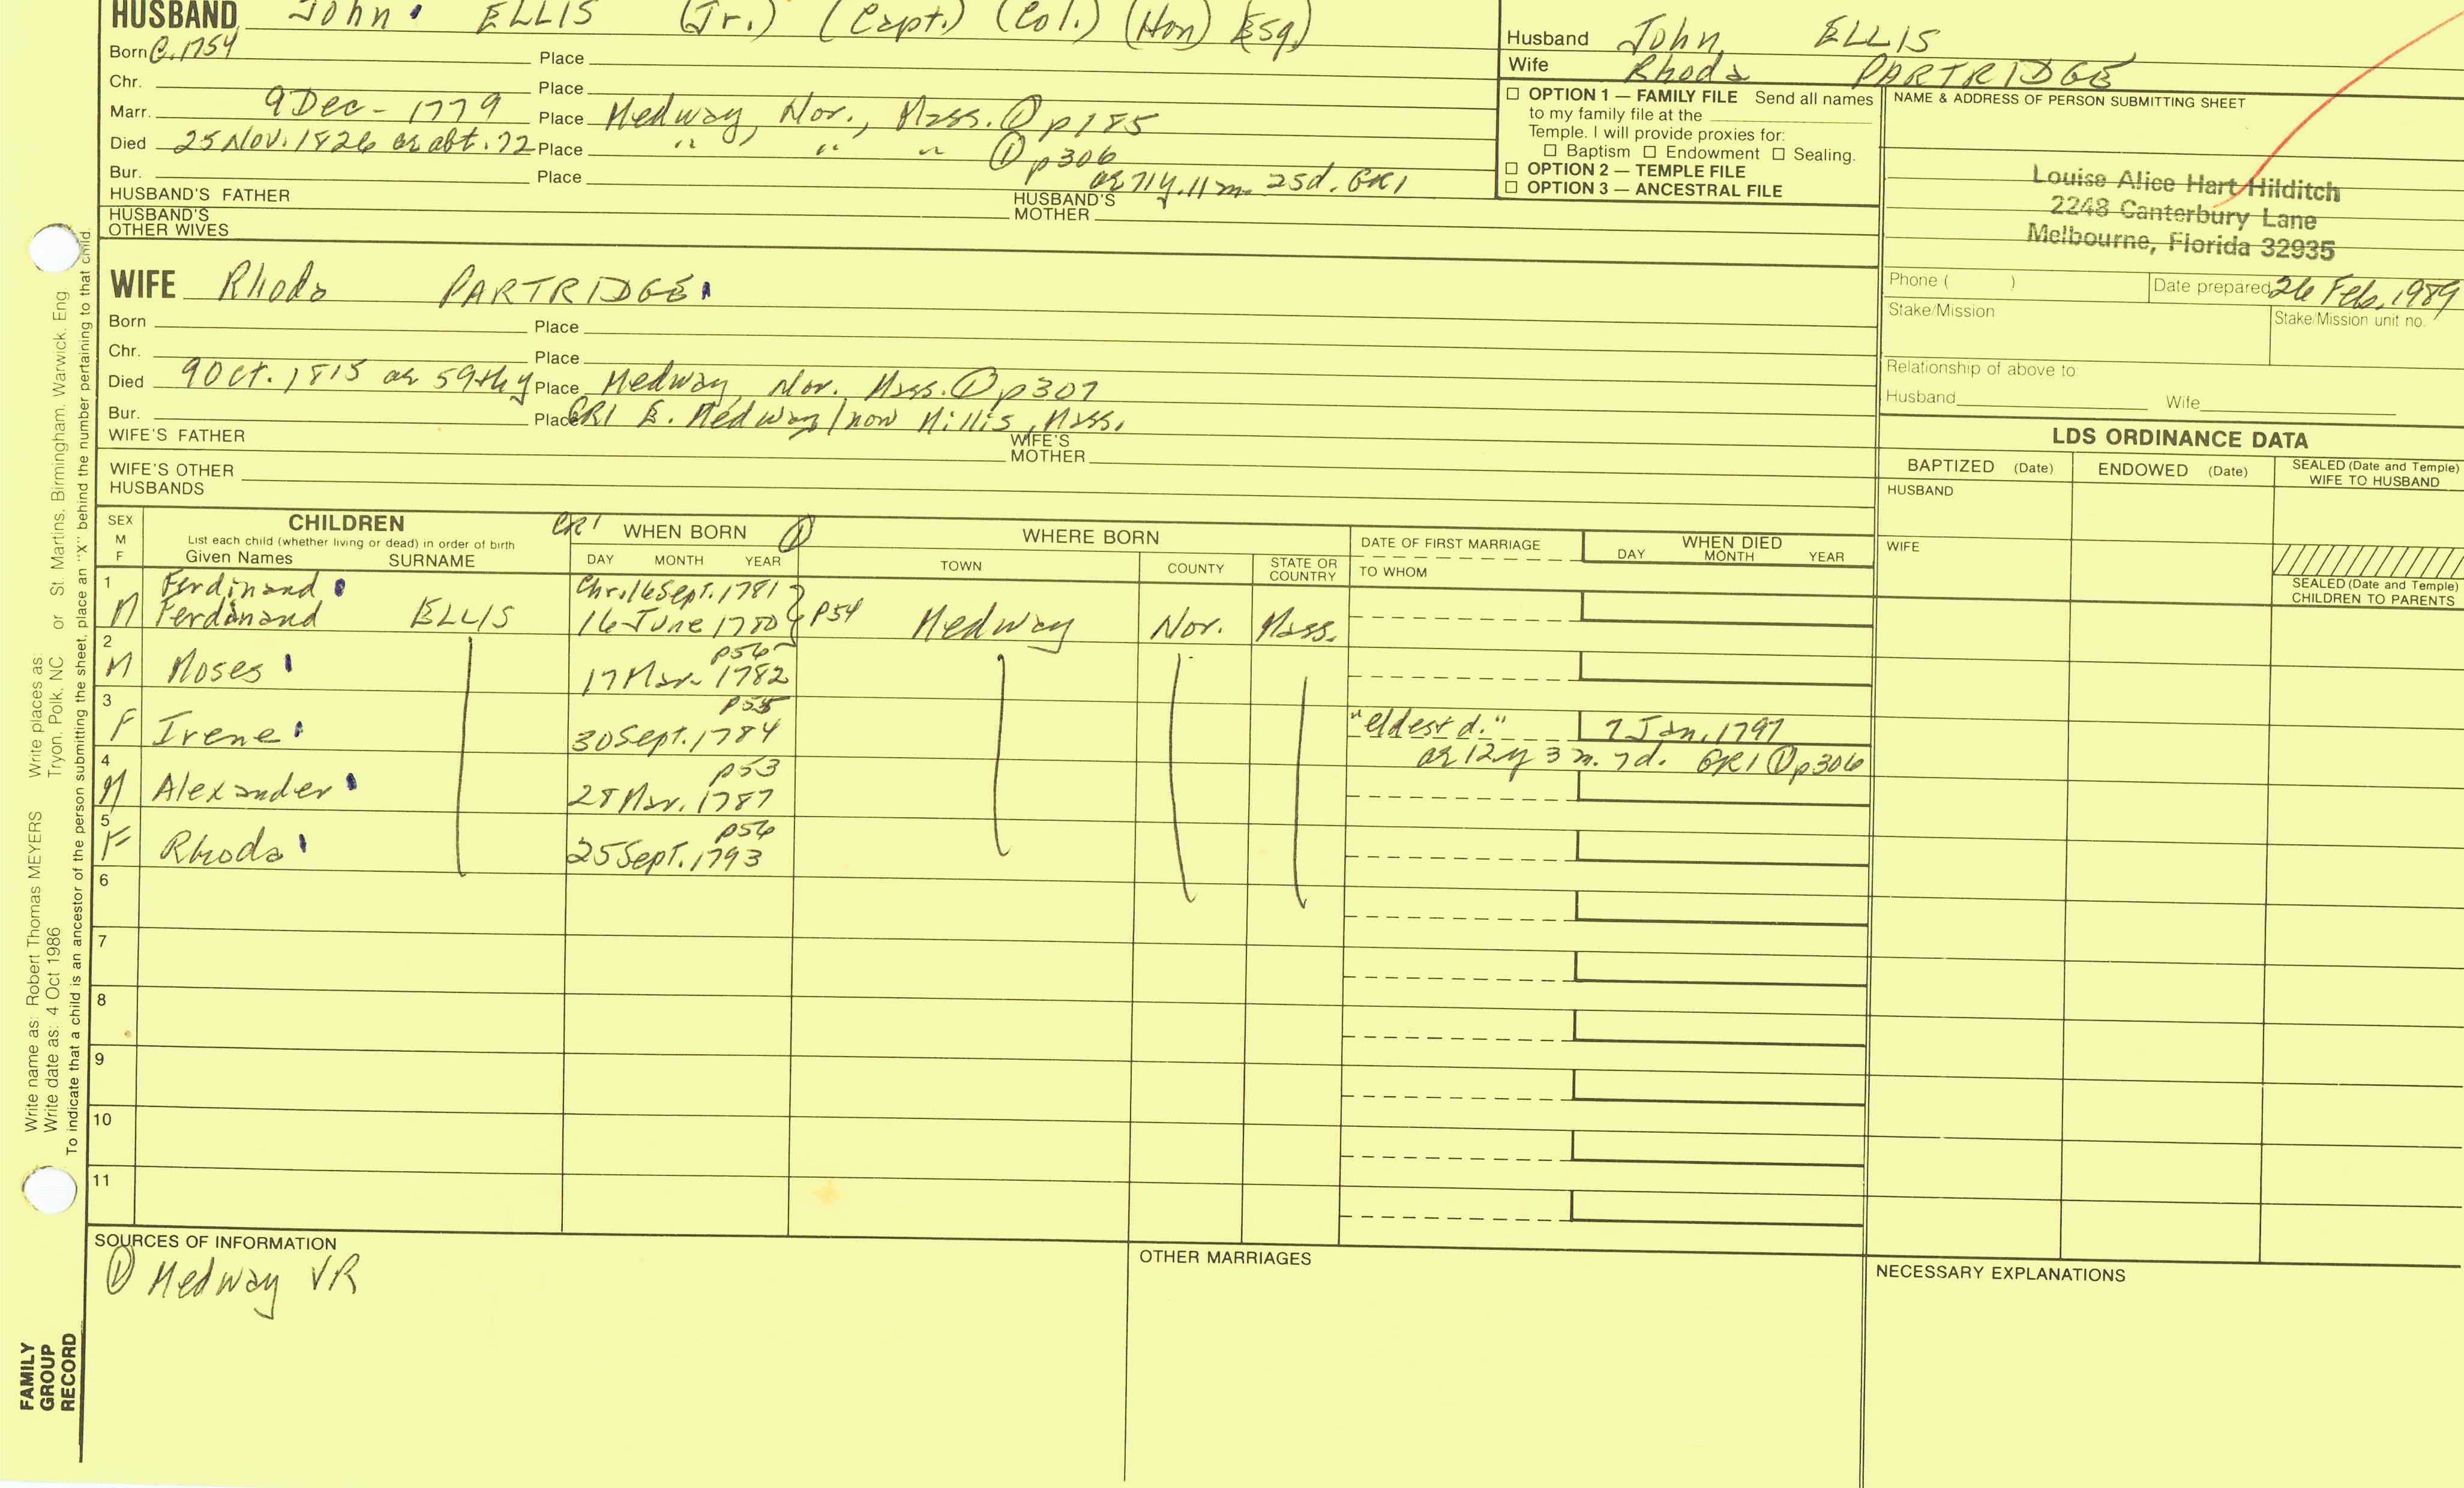 HUSBAND John ELLIS (Jr.) (Capt.) (Col.) (Hon) Esq)
Born C. 1754 Place
Chr. Place
Marr. 9 Dec - 1779 Place Medway, Nor., Mass. ① p185
Died 25 Nov. 1826 ae abt. 72 Place " " " ① p306
Bur. Place ae 71y. 11m 25d. GR1
HUSBAND'S FATHER HUSBAND'S MOTHER
HUSBAND'S OTHER WIVES
Husband John ELLIS
Wife Rhoda PARTRIDGE
☐ OPTION 1 — FAMILY FILE Send all names
to my family file at the
Temple. I will provide proxies for:
☐ Baptism ☐ Endowment ☐ Sealing.
☐ OPTION 2 — TEMPLE FILE
☐ OPTION 3 — ANCESTRAL FILE
NAME & ADDRESS OF PERSON SUBMITTING SHEET
Louise Alice Hart Hilditch
2248 Canterbury Lane
Melbourne, Florida 32935
Phone ( ) Date prepared 26 Feb. 1989
Stake/Mission Stake/Mission unit no.
Relationship of above to:
Husband Wife
WIFE Rhoda PARTRIDGE
Born Place
Chr. Place
Died 9 Oct. 1815 ae 59th y Place Medway, Nor. Mass. ① p307
Bur. Place GR1 E. Medway/now Millis, Mass.
WIFE'S FATHER WIFE'S MOTHER
WIFE'S OTHER HUSBANDS
LDS ORDINANCE DATA
BAPTIZED (Date) ENDOWED (Date) SEALED (Date and Temple) WIFE TO HUSBAND
HUSBAND
WIFE
SEALED (Date and Temple) CHILDREN TO PARENTS
SEX M F
CHILDREN
List each child (whether living or dead) in order of birth
Given Names SURNAME
CR1 WHEN BORN ①
DAY MONTH YEAR
WHERE BORN
TOWN COUNTY STATE OR COUNTRY
DATE OF FIRST MARRIAGE
TO WHOM
WHEN DIED
DAY MONTH YEAR
1 Ferdinand Chr. 16 Sept. 1781
M Ferdinand ELLIS 16 June 1780 p54 Medway Nor. Mass.
2 p56
M Moses 17 Mar. 1782
3 p55
F Irene 30 Sept. 1784 "eldest d." 7 Jan. 1797
ae 12y 3m. 7d. GR1 ① p306
4 p53
M Alexander 28 Mar. 1787
5 p56
F Rhoda 25 Sept. 1793
6
7
8
9
10
11
SOURCES OF INFORMATION
① Medway VR
OTHER MARRIAGES
NECESSARY EXPLANATIONS
Write name as: Robert Thomas MEYERS Write places as: St. Martins, Birmingham, Warwick, Eng
Write date as: 4 Oct 1986 Tryon, Polk, NC or
To indicate that a child is an ancestor of the person submitting the sheet, place an "X" behind the number pertaining to that child.
FAMILY
GROUP
RECORD